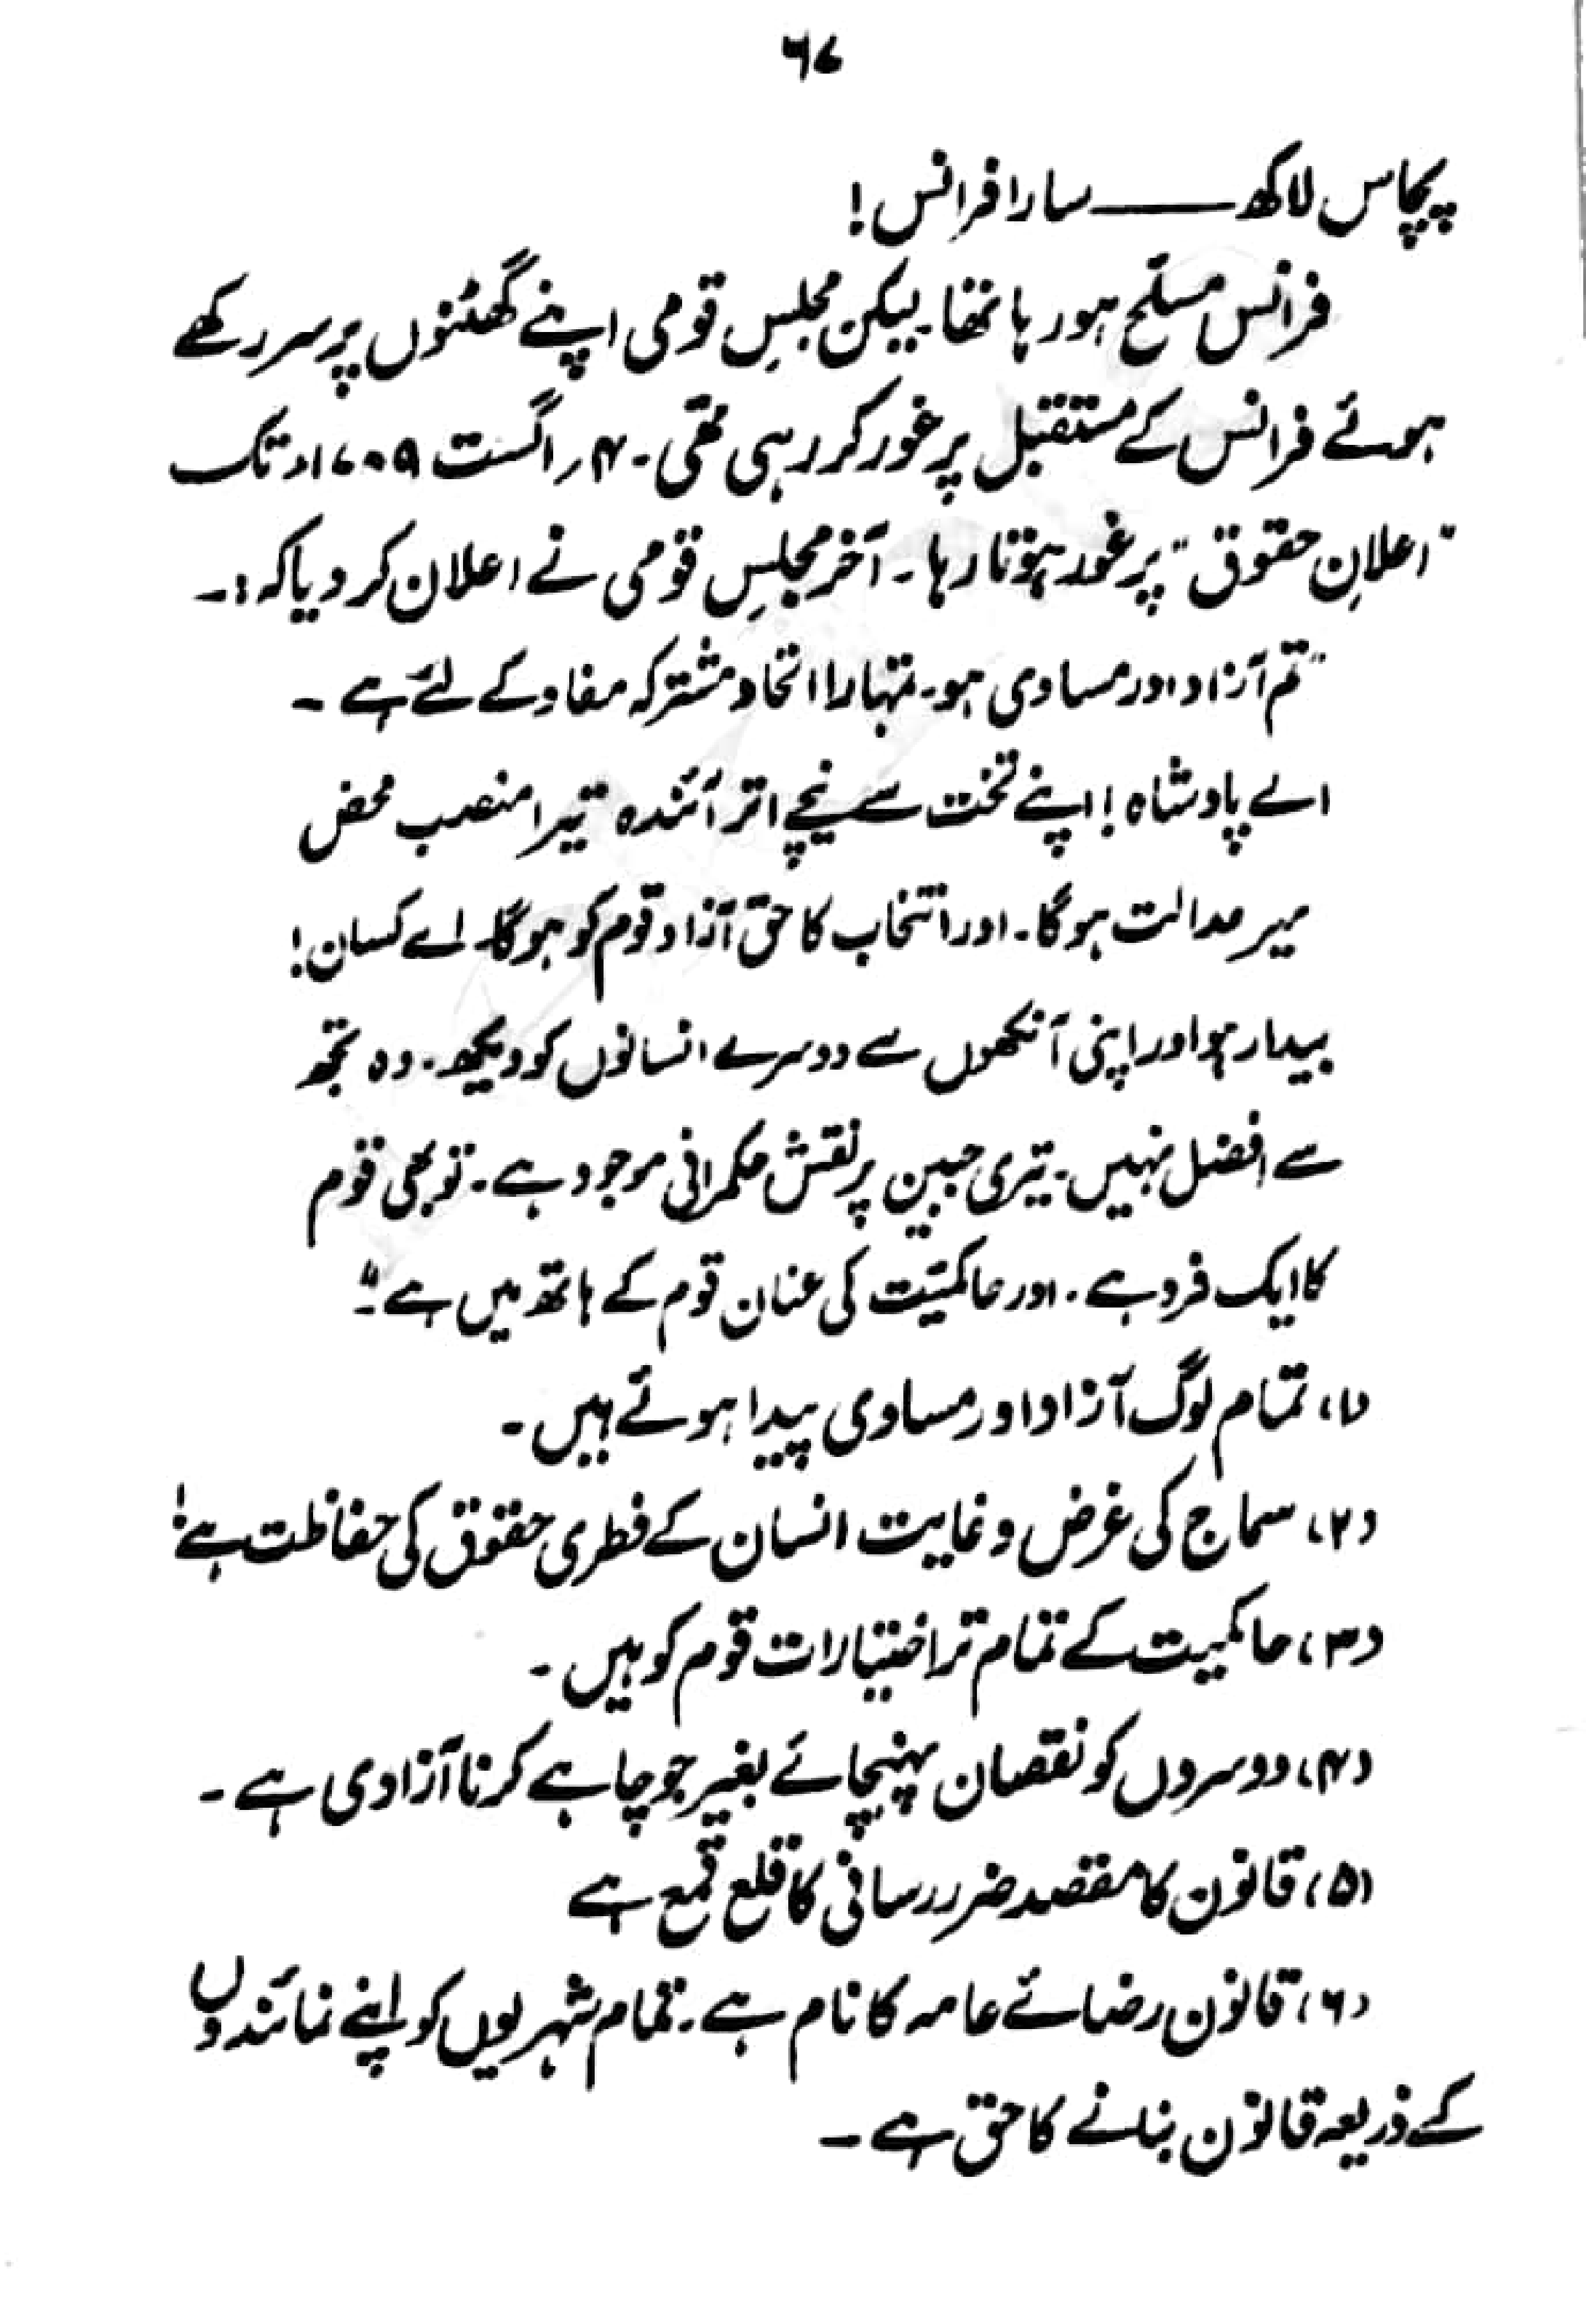 ۶۷
پچاس لاکھ ــــــ سارا فرانس!
فرانس مسلّح ہو رہا تھا۔ لیکن مجلسِ قومی اپنے گھٹنوں پر سر رکھے
ہوئے فرانس کے مستقبل پر غور کر رہی تھی۔ ۴؍ اگست ۱۷۰۹ء تک
"اعلانِ حقوق" پر غور ہوتا رہا۔ آخر مجلسِ قومی نے اعلان کر دیا کہ:۔
"تم آزاد اور مساوی ہو۔ تمہارا اتحاد مشترکہ مفاد کے لئے ہے ۔
اے پادشاہ! اپنے تخت سے نیچے اتر آئندہ تیرا منصب محض
میر عدالت ہوگا۔ اور انتخاب کا حق آزاد قوم کو ہوگا۔ اے کسان!
بیدار ہو اور اپنی آنکھوں سے دوسرے انسانوں کو دیکھ۔ وہ تجھ
سے افضل نہیں۔ تیری جبین پر نقش حکمرانی موجود ہے۔ تو بھی قوم
کا ایک فرد ہے۔ اور حاکمیّت کی عنان قوم کے ہاتھ میں ہے۔"
(۱) تمام لوگ آزاد اور مساوی پیدا ہوئے ہیں۔
(۲) سماج کی غرض و غایت انسان کے فطری حقوق کی حفاظت ہے!
(۳) حاکمیت کے تمام تر اختیارات قوم کو ہیں۔
(۴) دوسروں کو نقصان پہنچائے بغیر جو چاہے کرنا آزادی ہے۔
(۵) قانون کا مقصد ضرر رسانی کا قلع قمع ہے
(۶) قانون رضائے عامہ کا نام ہے۔ تمام شہریوں کو اپنے نمائندوں
کے ذریعہ قانون بنانے کا حق ہے۔